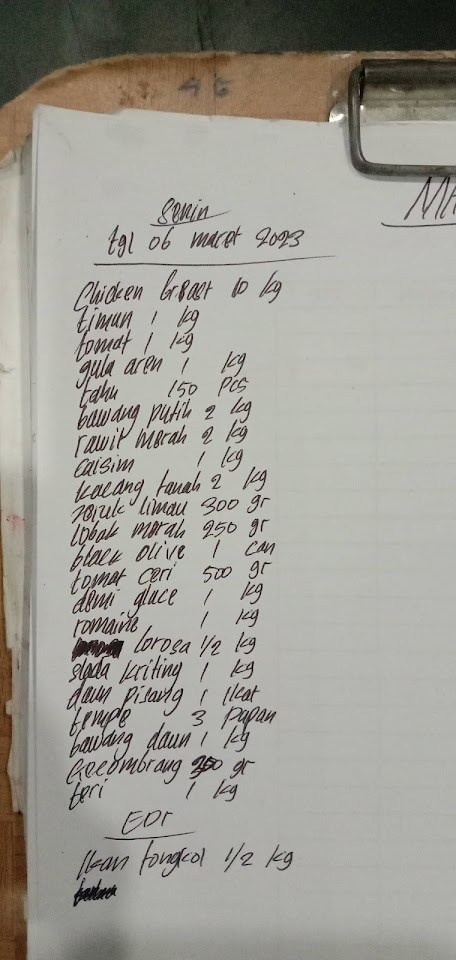 Senin
tgl 06 maret 2023
MA
Chicken breast 10 kg
timun 1 kg
tomat 1 kg
gula aren 1 kg
tahu 150 pcs
bawang putih 2 kg
rawit merah 2 kg
caisim 1 kg
kacang tanah 2 kg
jeruk limau 300 gr
lobak merah 250 gr
black olive 1 can
tomat ceri 500 gr
demi glace 1 kg
romaine 1 kg
lorosa 1/2 kg
slada kriting 1 kg
daun pisang 1 ikat
tempe 3 papan
bawang daun 1 kg
kecombrang gr
teri 1 kg
EDR
Ikan tongkol 1/2 kg